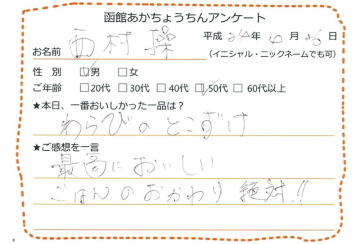 函館あかちょうちんアンケート
お名前 西村 操 平成 24年 4月 26日
(イニシャル・ニックネームでも可)
性 別 ☑男 □女
ご年齢 □20代 □30代 □40代 ☑50代 □60代以上
★本日、一番おいしかった一品は？
わらびのとこずけ
★ご感想を一言
最高においしい
ごはんのおかわり 絶対!!